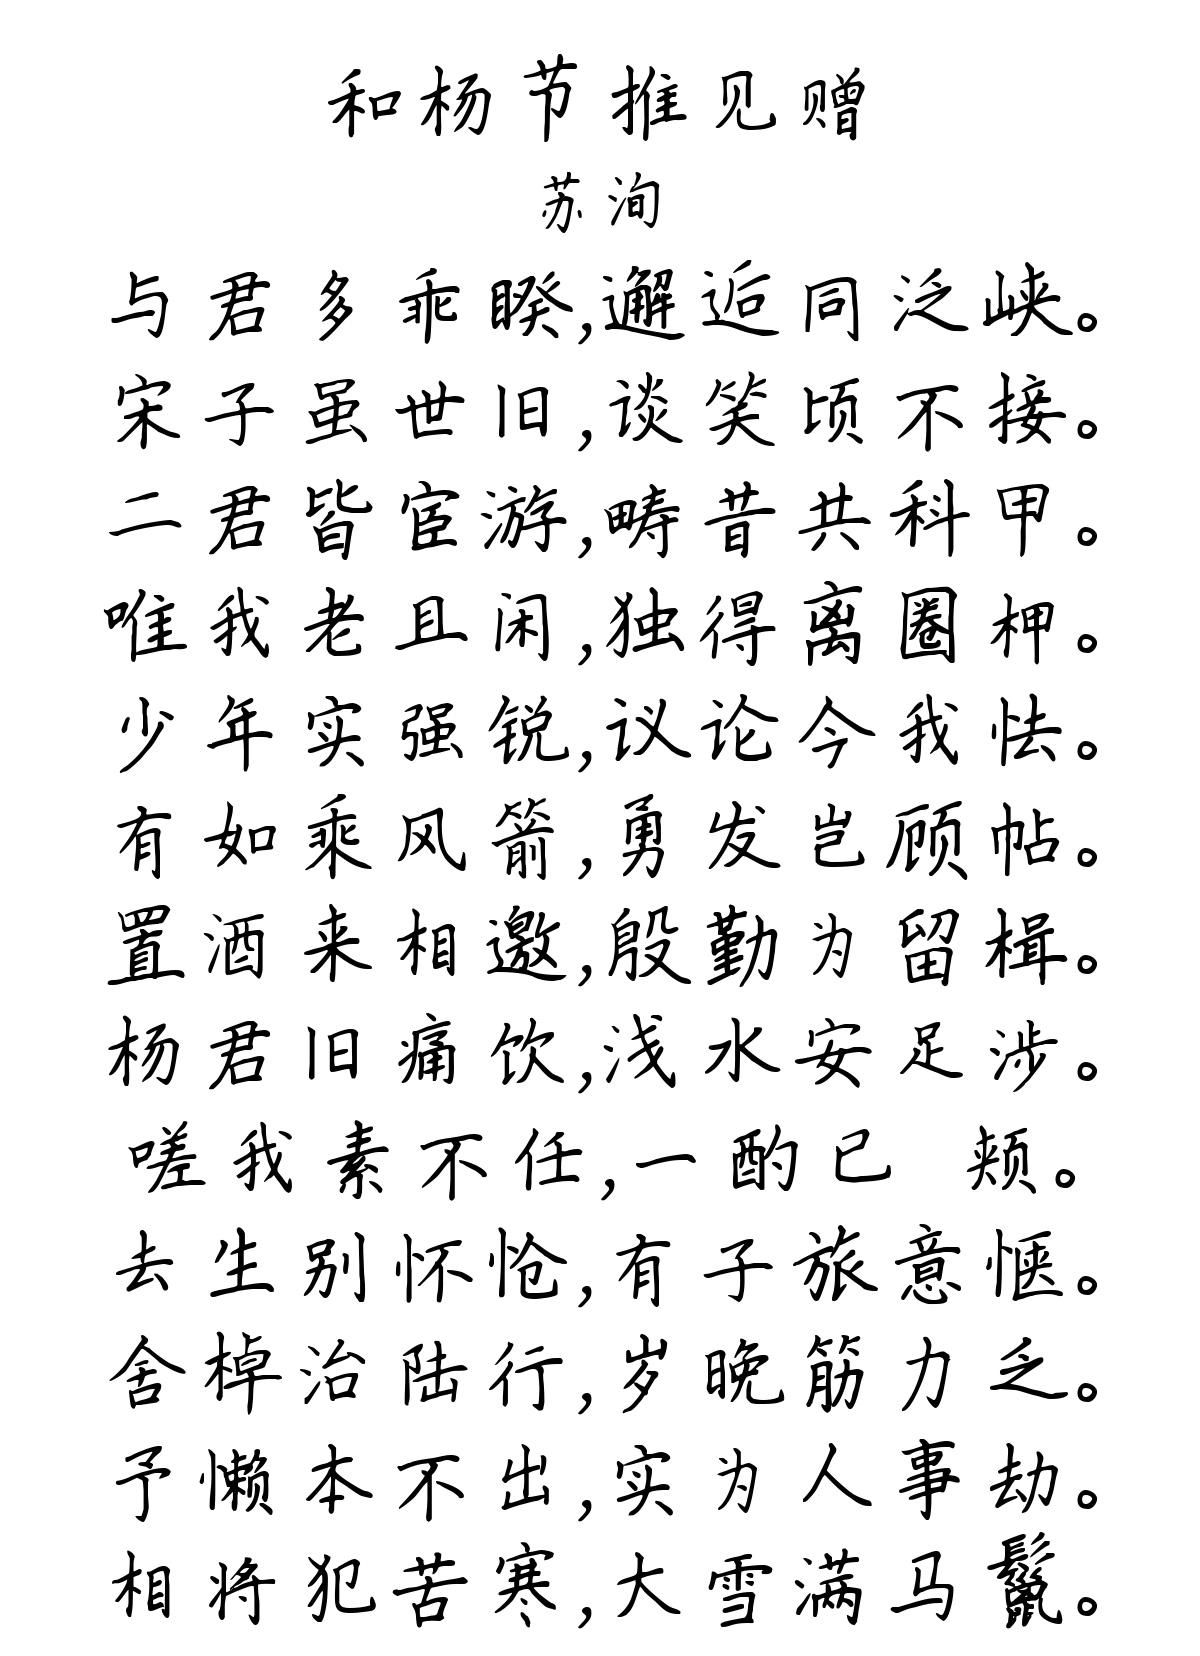 和杨节推见赠
苏洵
与君多乖睽,邂逅同泛峡。
宋子虽世旧,谈笑顷不接。
二君皆宦游,畴昔共科甲。
唯我老且闲,独得离圈柙。
少年实强锐,议论今我怯。
有如乘风箭,勇发岂顾帖。
置酒来相邀,殷勤为留楫。
杨君旧痛饮,浅水安足涉。
嗟我素不任,一酌已 颊。
去生别怀怆,有子旅意惬。
舍棹治陆行,岁晚筋力乏。
予懒本不出,实为人事劫。
相将犯苦寒,大雪满马鬣。